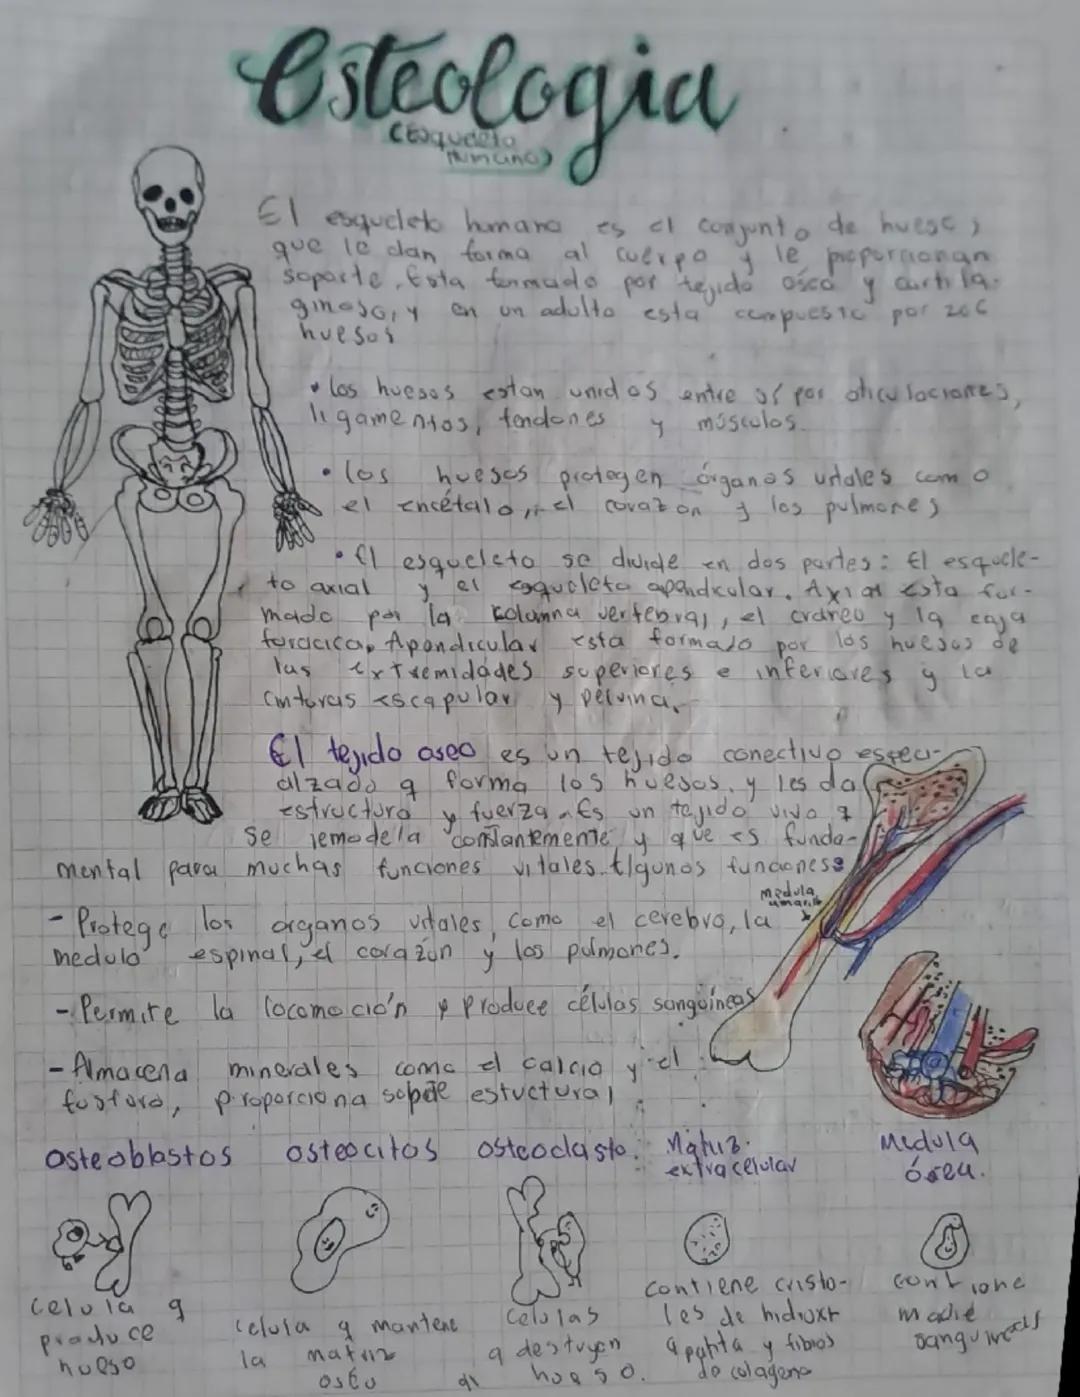 Osteologia
(Esqueleto
humano)
El esqueleto humano es el conjunto de huesos
que le dan forma al cuerpo y le proporcionan
soporte. Esta formado por tejido osco y cartila-
ginoso, y en un adulto esta compuesto por 206
huesos
• los huesos estan unidos entre sí por aticulaciones,
ligamentos, tendones y músculos.
• los huesos protegen órganos vitales como
el encéfalo, el corazon y los pulmones
• El esqueleto se divide en dos partes: El esquele-
to axial y el esqueleto apendicular. Axial esta for-
mado por la kolumna vertebral, el craneo y la caja
toracica. Apendicular esta formado por los huesos de
las extremidades superiores e inferiores y la
cinturas escapular y pelvina.
El tejido oseo es un tejido conectivo especi-
alzado q forma los huesos, y les da
estructura y fuerza. Es un tejido vivo q
se remodela constantemente y que es funda-
mental para muchas funciones vitales. Algunos funciones:
medula
amarilla
- Protege los organos vitales, como el cerebro, la
medula espinal, el corazón y los pulmones.
- Permite la locomoción y produce células sangüineas
- Almacena minerales como el calcio y el
fosforo, proporciona soporte estuctural
osteoblastos osteocitos osteoclasto. Matriz extracelular Medula ósea.
celula q
produce
hueso
celula q mantene
la matriz
oseo
Celulas
q destuyen
al hueso.
contiene crista-
les de hidroxi
apatita y fibras
de colageno
contiene
madre
sanguineas